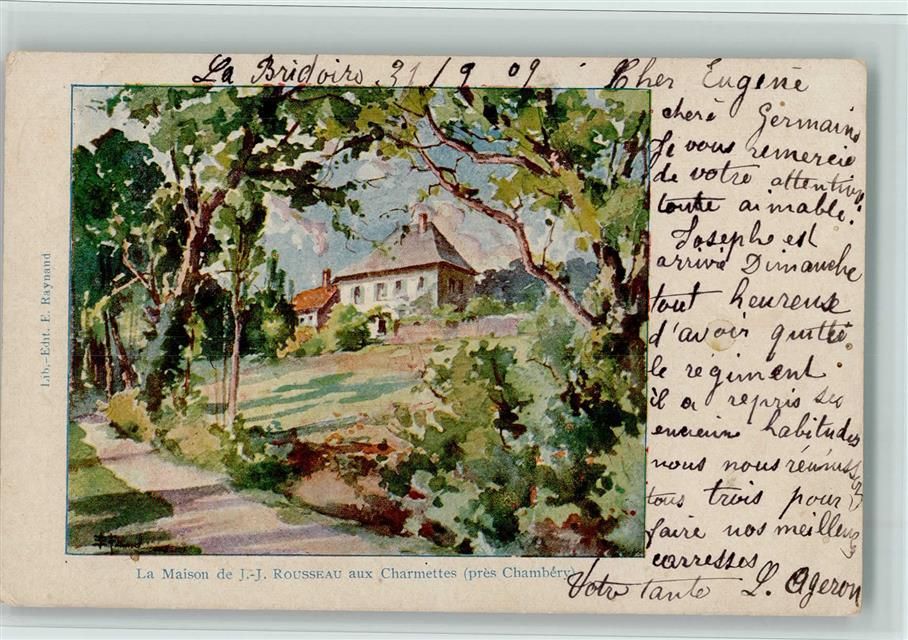 La Bridoire 21/9 09 Cher Eugène
cherè Germain
Je vous remercie
de votre attention
toute aimable.
Josephe est
arrivé Dimanche
tout heureux
d'avoir quitté
le régiment
il a repris ses
encienn habitudes
nous nous réunissons
tous trois pour
faire nos meilleurs
carresses
Votre tante L. Ageron
Lib.-Edit. E. Raynaud
La Maison de J.-J. ROUSSEAU aux Charmettes (près Chambéry)